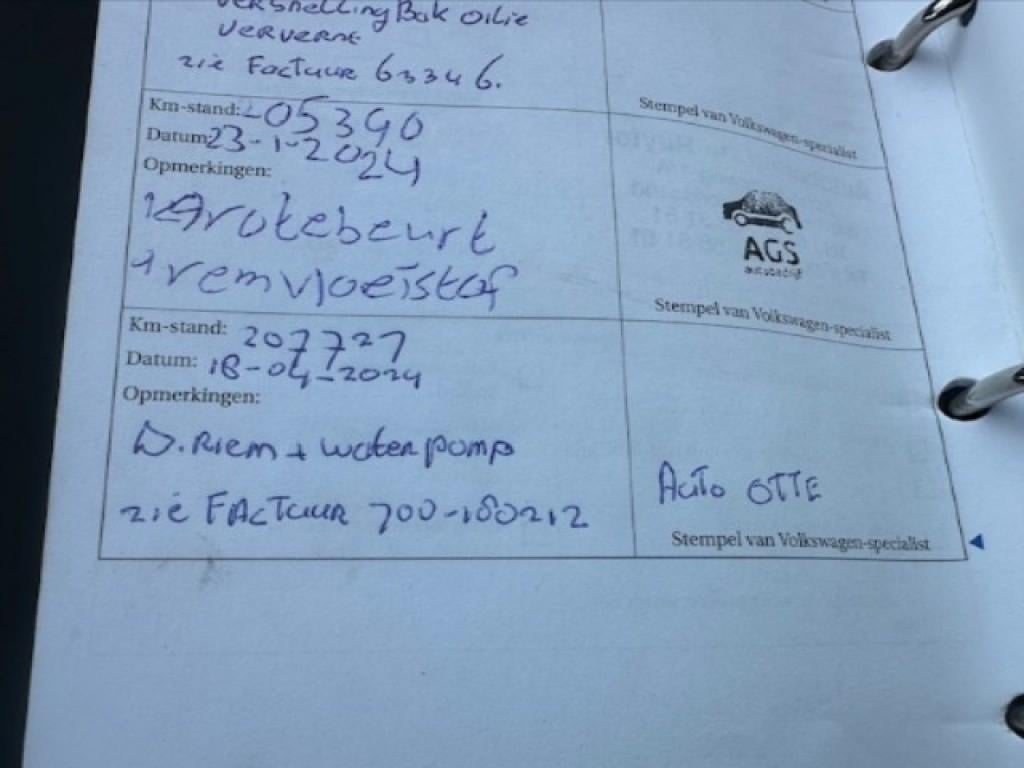 Versnelling Bak Oilie
ververnt
zie Factuur 63346.
Stempel van Volkswagen-specialist
Km-stand: 205390
Datum: 23-1-2024
Opmerkingen:
Grotebeurt
+ remvloeistof
AGS
autobedrijf
Stempel van Volkswagen-specialist
Km-stand: 207727
Datum: 18-04-2024
Opmerkingen:
D.Riem + waterpomp
zie FACTUUR 700-180212
Auto OTTE
Stempel van Volkswagen-specialist